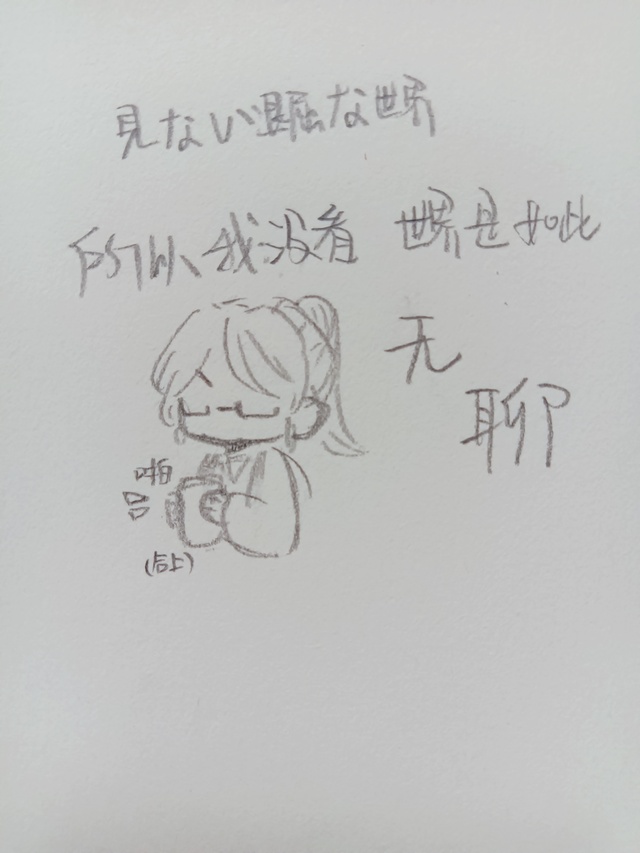 見ない退屈な世界
所以我没看 世界是如此
无
聊
啪
(合上)